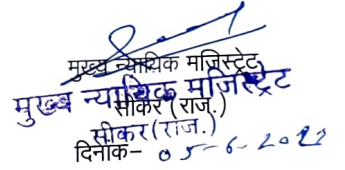 मुख्य न्यायिक मजिस्ट्रेट
मुख्य न्यायिक मजिस्ट्रेट
सीकर (राज.)
सीकर (राज.)
दिनांक- 05-6-2022